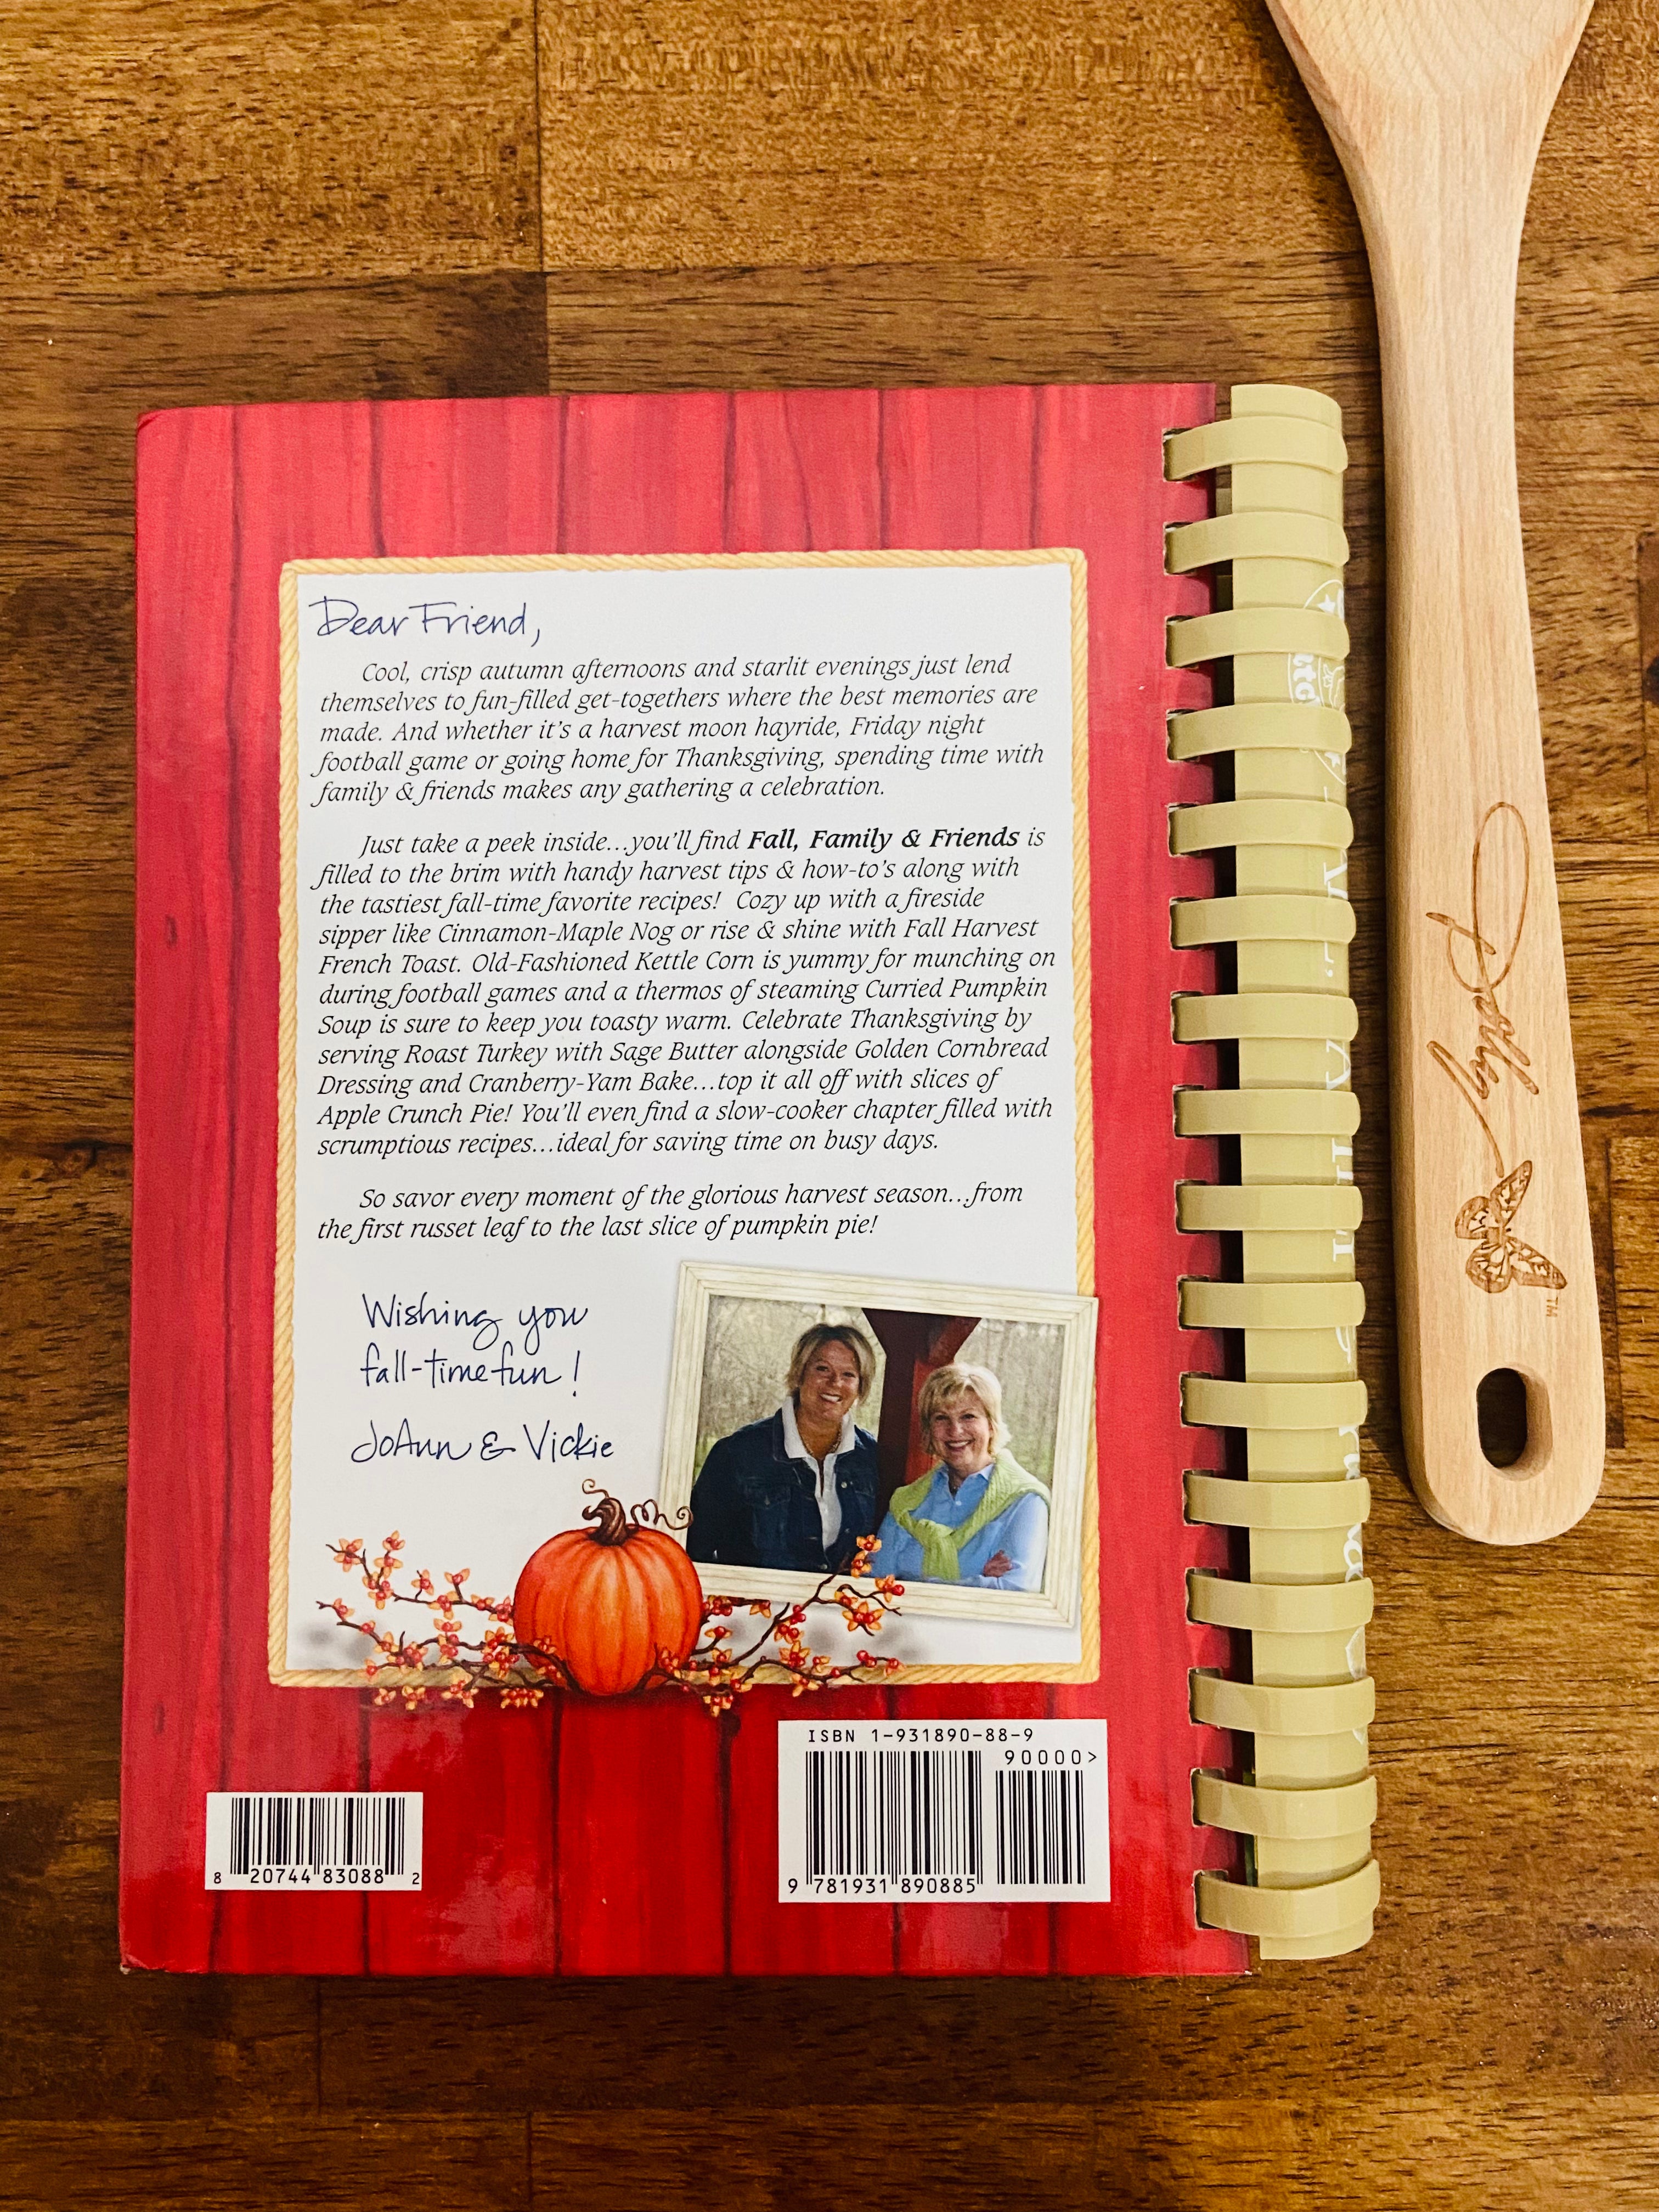 Dear Friend,
Cool, crisp autumn afternoons and starlit evenings just lend
themselves to fun-filled get-togethers where the best memories are
made. And whether it's a harvest moon hayride, Friday night
football game or going home for Thanksgiving, spending time with
family & friends makes any gathering a celebration.
Just take a peek inside...you'll find Fall, Family & Friends is
filled to the brim with handy harvest tips & how-to's along with
the tastiest fall-time favorite recipes! Cozy up with a fireside
sipper like Cinnamon-Maple Nog or rise & shine with Fall Harvest
French Toast. Old-Fashioned Kettle Corn is yummy for munching on
during football games and a thermos of steaming Curried Pumpkin
Soup is sure to keep you toasty warm. Celebrate Thanksgiving by
serving Roast Turkey with Sage Butter alongside Golden Cornbread
Dressing and Cranberry-Yam Bake...top it all off with slices of
Apple Crunch Pie! You'll even find a slow-cooker chapter filled with
scrumptious recipes...ideal for saving time on busy days.
So savor every moment of the glorious harvest season...from
the first russet leaf to the last slice of pumpkin pie!
Wishing you
fall-time fun!
JoAnn & Vickie
ISBN 1-931890-88-9
90000>
9 781931 890885
8 20744 83088 2
TM